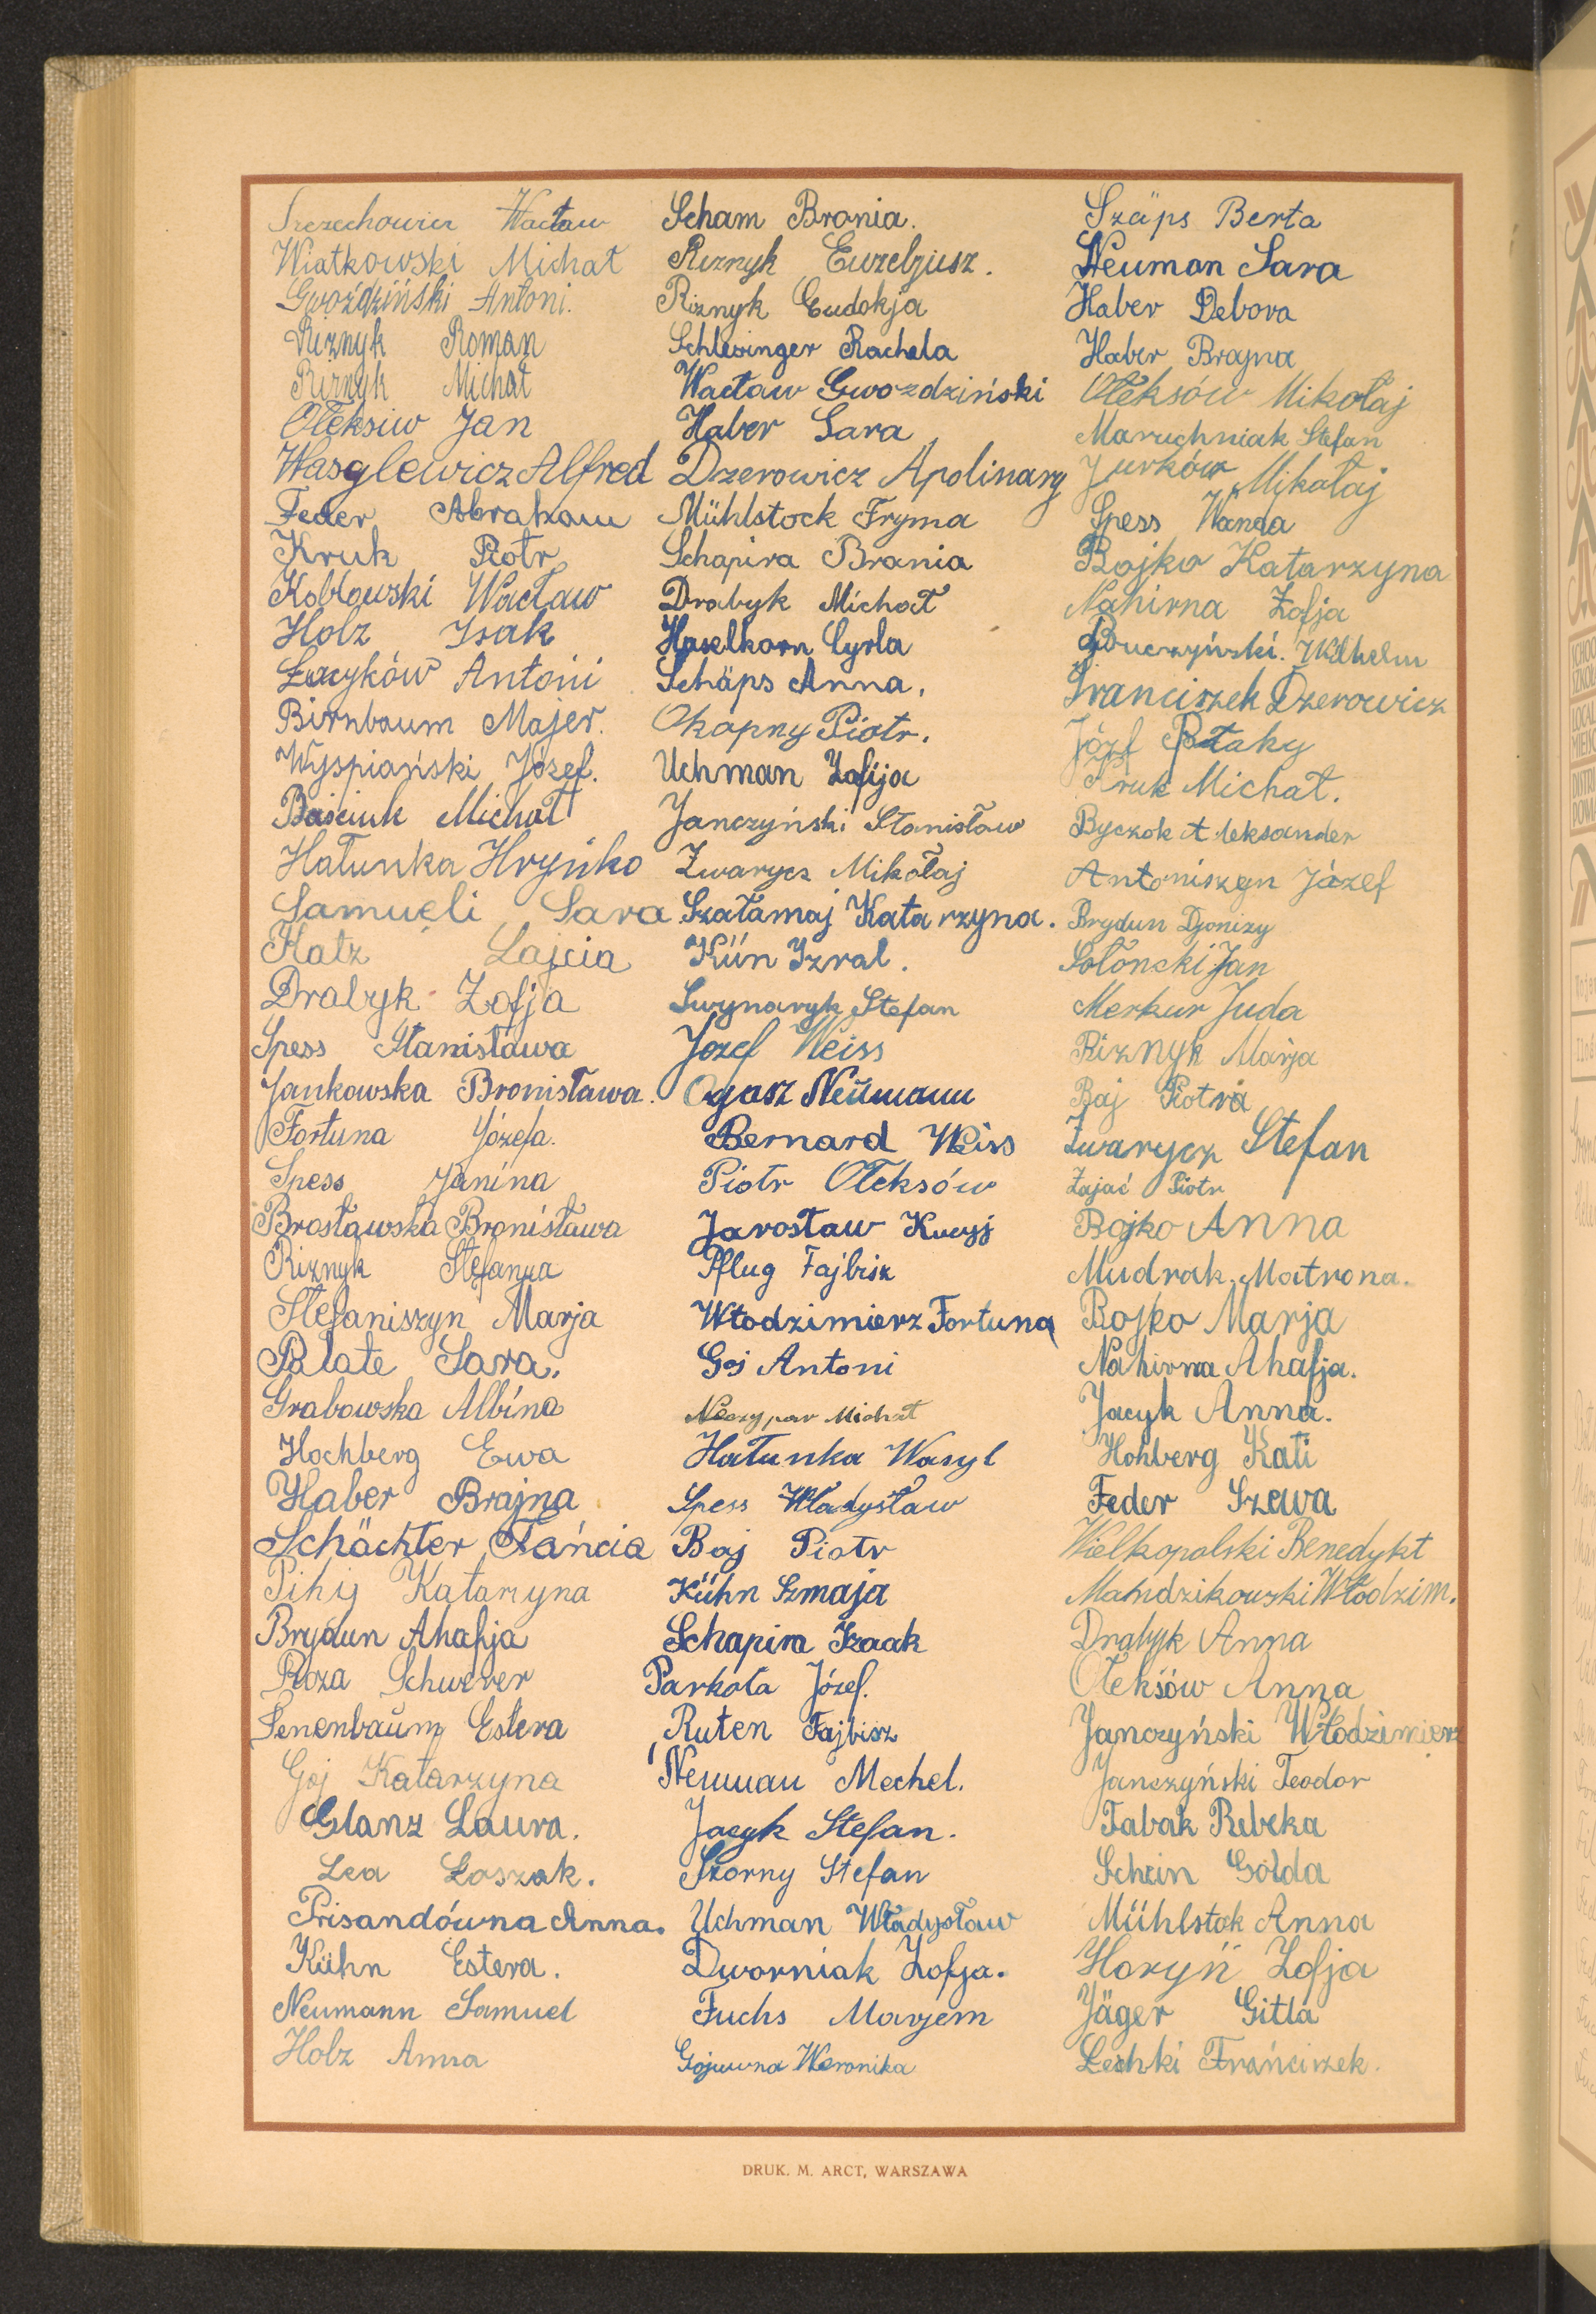 Szczechowicz Wacław
Wiatkowski Michał
Gwoździński Antoni.
Riznyk Roman
Riznyk Michał
Ołeksiw Jan
Wasylewicz Alfred
Feder Abraham
Kruk Piotr
Kobłowski Wacław
Holz Isak
Łacyków Antoni
Birnbaum Majer.
Wyspiański Józef.
Baściuk Michał
Hałunka Hryńko
Samueli Sara
Katz Lajcia
Drabyk Zofja
Spess Stanisława
Jankowska Bronisława.
Fortuna Józefa.
Spess Janina
Brosławska Bronisława
Riznyk Stefanja
Stefaniszyn Marja
Palate Sara.
Grabowska Albina
Hochberg Ewa
Haber Brajna
Schächter Fańcia
Pihij Katarzyna
Brydun Ahafja
Roza Schwerer
Senenbaum Estera
Goj Katarzyna
Glanz Laura.
Lea Łoszak.
Prisandówna Anna.
Kühn Estera.
Neumann Samuel
Holz Anna
Scham Brania.
Riznyk Euzebjusz.
Riznyk Eudokja
Schlesinger Rachela
Wacław Gwozdziński
Haber Sara
Dzerowicz Apolinary
Mühlstock Fryma
Schapira Brania
Drabyk Michał
Haselkorn Cyrla
Schäps Anna.
Okapny Piotr.
Uchman Zofija
Janczyński Stanisław
Zwarycz Mikołaj
Szałamaj Katarzyna.
Kün Izral.
Swynaryk Stefan
Jozef Weiss
Ogasz Neümann
Bernard Weiss
Piotr Ołeksów
Jarosław Kucyj
Pflug Fajbisz
Włodzimierz Fortuna
Goj Antoni
Neczypar Michał
Hałunka Wasyl
Spess Władysław
Baj Piotr
Kühn Szmaja
Schapira Izaak
Parkoła Józef.
Ruten Fajbisz
Neuman Mechel.
Jacyk Stefan.
Skorny Stefan
Uchman Władysław
Dworniak Zofja.
Fuchs Marjem
Gojuwna Weronika
Szäps Berta
Neuman Sara
Haber Debora
Haber Brajna
Ołeksów Mikołaj
Maruchniak Stefan
Jurków Mikołaj
Spess Wanda
Bojko Katarzyna
Nahirna Zofja
Buczyński. Wilhelm
Franciszek Dzerowicz
Józef Bataky
Kruk Michał.
Byczok Aleksander
Antoniszyn Józef
Brydun Djonizy
Sołoncki Jan
Merkur Juda
Riznyk Marja
Baj Piotra
Zwarycz Stefan
Zając Piotr
Bojko Anna
Mudrak Matrona.
Bojko Marja
Nahirna Ahafja.
Jacyk Anna.
Hohberg Kati
Feder Szewa
Wielkopolski Benedykt
Mandzikowski Włodzim.
Drabyk Anna
Ołeksów Anna
Janczyński Włodzimierz
Janczyński Teodor
Tabak Rebeka
Schein Golda
Mühlstok Anna
Horyń Zofja
Jäger Gitla
Leshki Franciszek.
DRUK. M. ARCT, WARSZAWA